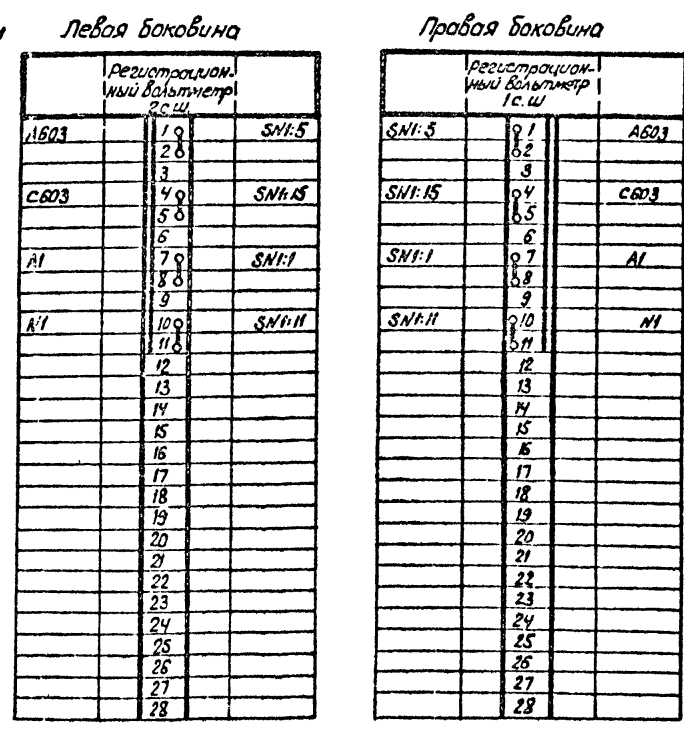 Левая боковина
Регистрацион-
ный вольтметр
2 с. ш.
А603 1 SN1:5
2
3
С603 4 SN1:15
5
6
А1 7 SN1:1
8
9
N1 10 SN1:11
11
12
13
14
15
16
17
18
19
20
21
22
23
24
25
26
27
28
Правая боковина
Регистрацион-
ный вольтметр
1 с. ш
SN1:5 1 А603
2
3
SN1:15 4 С603
5
6
SN1:1 7 А1
8
9
SN1:11 10 N1
11
12
13
14
15
16
17
18
19
20
21
22
23
24
25
26
27
28